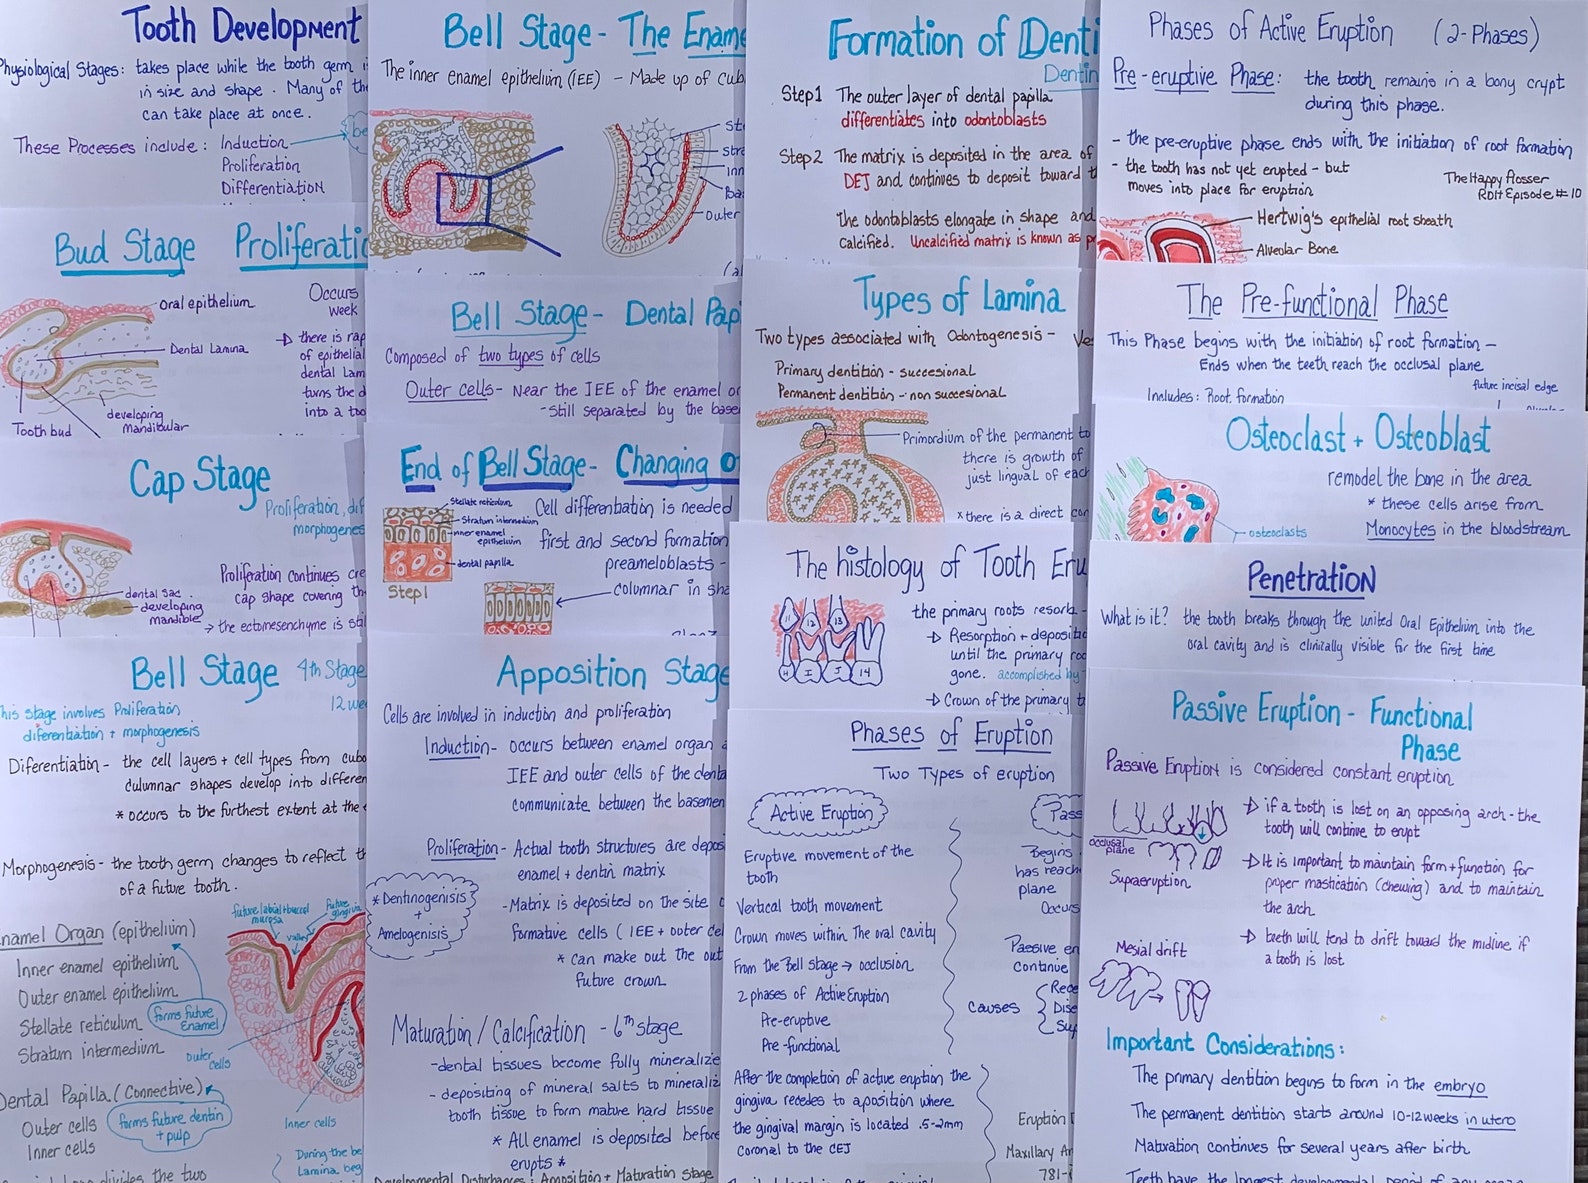 Tooth Development
Physiological Stages: takes place while the tooth germ
in size and shape. Many of the
can take place at once.
These Processes include: Induction
Proliferation
Differentiation
Bud Stage
Oral epithelium
Dental Lamina
developing
mandibular
Tooth bud
Occurs
week
there is
of epithelial
dental
turns the
into a
Cap Stage
Proliferation,
dental sac
developing
mandible
Proliferation continues
cap shape covering
→ the ectomesenchyme is
Bell Stage 4th Stage
This stage involves Proliferation
diferentiation + morphogenesis
Diferentiation - the cell layers + cell types from
culumnar shapes develop into
* occurs to the furthest extent at the
Morphogenesis - the tooth germ changes to reflect
of a future tooth.
Enamel Organ (epithelium)
Inner enamel epithelium
Outer enamel epithelium
Stellate reticulum
Stratum intermedium
forms future
Enamel
future labial + buccal
mucosa
future
valley
outer
cells
Inner cells
Dental Papilla (Connective)
Outer cells
Inner cells
forms future dentin
+ pulp
During the
Lamina
divides the two
Bell Stage - The
The inner enamel epithelium (IEE) - Made up of
Bell Stage - Dental
Composed of two types of cells
Outer cells - Near the IEE of the enamel
- still separated by the
End of Bell Stage - Changing
Stellate reticulum
Stratum intermedium
inner enamel
epithelium
dental papilla
Step 1
Cell differentiation is needed
first and second formation
preameloblasts -
columnar in
Apposition Stage
Cells are involved in induction and proliferation
Induction - occurs between enamel organ
IEE and outer cells of the
communicate between the
Proliferation - Actual tooth structures are
enamel + dentin matrix
* Dentinogenisis
+
Amelogenisis
- Matrix is deposited on the site
formative cells (IEE + outer
* can make out the
future crown
Maturation / Calcification - 6th stage
- dental tissues become fully
- depositing of mineral salts to
tooth tissue to form mature hard tissue
* All enamel is deposited before
erupts *
Developmental Disturbances: Apposition + Maturation Stage
Formation of
Step 1 The outer layer of dental papilla
differentiates into odontoblasts
Step 2 The matrix is deposited in the area of
DEJ and continues to deposit toward
the odontoblasts elongate in shape and
calcified. Uncalcified matrix is known as
Types of Lamina
Two types associated with Odontogenesis -
Primary dentition - succesional
Permanent dentition - non succesional
Primordium of the permanent
there is growth of
just lingual of each
* there is a direct
The histology of Tooth
11 12 13
H I J 14
the primary roots resorb -
Resorption +
until the primary
gone. accomplished by
Crown of the primary
Phases of Eruption
Two Types of eruption
Active Eruption
Eruptive movement of the
tooth
Vertical tooth movement
Crown moves within the oral cavity
From the Bell stage → occlusion
2 phases of Active Eruption
Pre-eruptive
Pre-functional
After the completion of active eruption the
gingiva recedes to a position where
the gingival margin is located .5-2mm
Coronal to the CEJ
Begins
has
plane
Occurs
Passive
continue
Causes
Eruption
Maxillary
Phases of Active Eruption (2-Phases)
Pre-eruptive Phase: the tooth remains in a bony crypt
during this phase.
- the pre-eruptive phase ends with the initiation of root formation
- the tooth has not yet erupted - but
moves into place for eruption
The Happy Flosser
RDH Episode #10
Hertwig's epithelial root sheath
Alveolar Bone
The Pre-functional Phase
This Phase begins with the initiation of root formation -
Ends when the teeth reach the occlusal plane
future incisal edge
Includes: Root formation
Osteoclast + Osteoblast
remodel the bone in the area
* these cells arise from
Monocytes in the bloodstream
osteoclasts
Penetration
What is it? the tooth breaks through the united Oral Epithelium into the
oral cavity and is clinically visible for the first time
Passive Eruption - Functional
Phase
Passive Eruption is considered constant eruption
occlusal
plane
Supraeruption
if a tooth is lost on an opposing arch - the
tooth will continue to erupt
It is important to maintain form + function for
proper mastication (chewing) and to maintain
the arch
Mesial drift
teeth will tend to drift toward the midline if
a tooth is lost
Important Considerations:
The primary dentition begins to form in the embryo
The permanent dentition starts around 10-12 weeks in utero
Maturation continues for several years after birth
Teeth have the longest developmental period of any